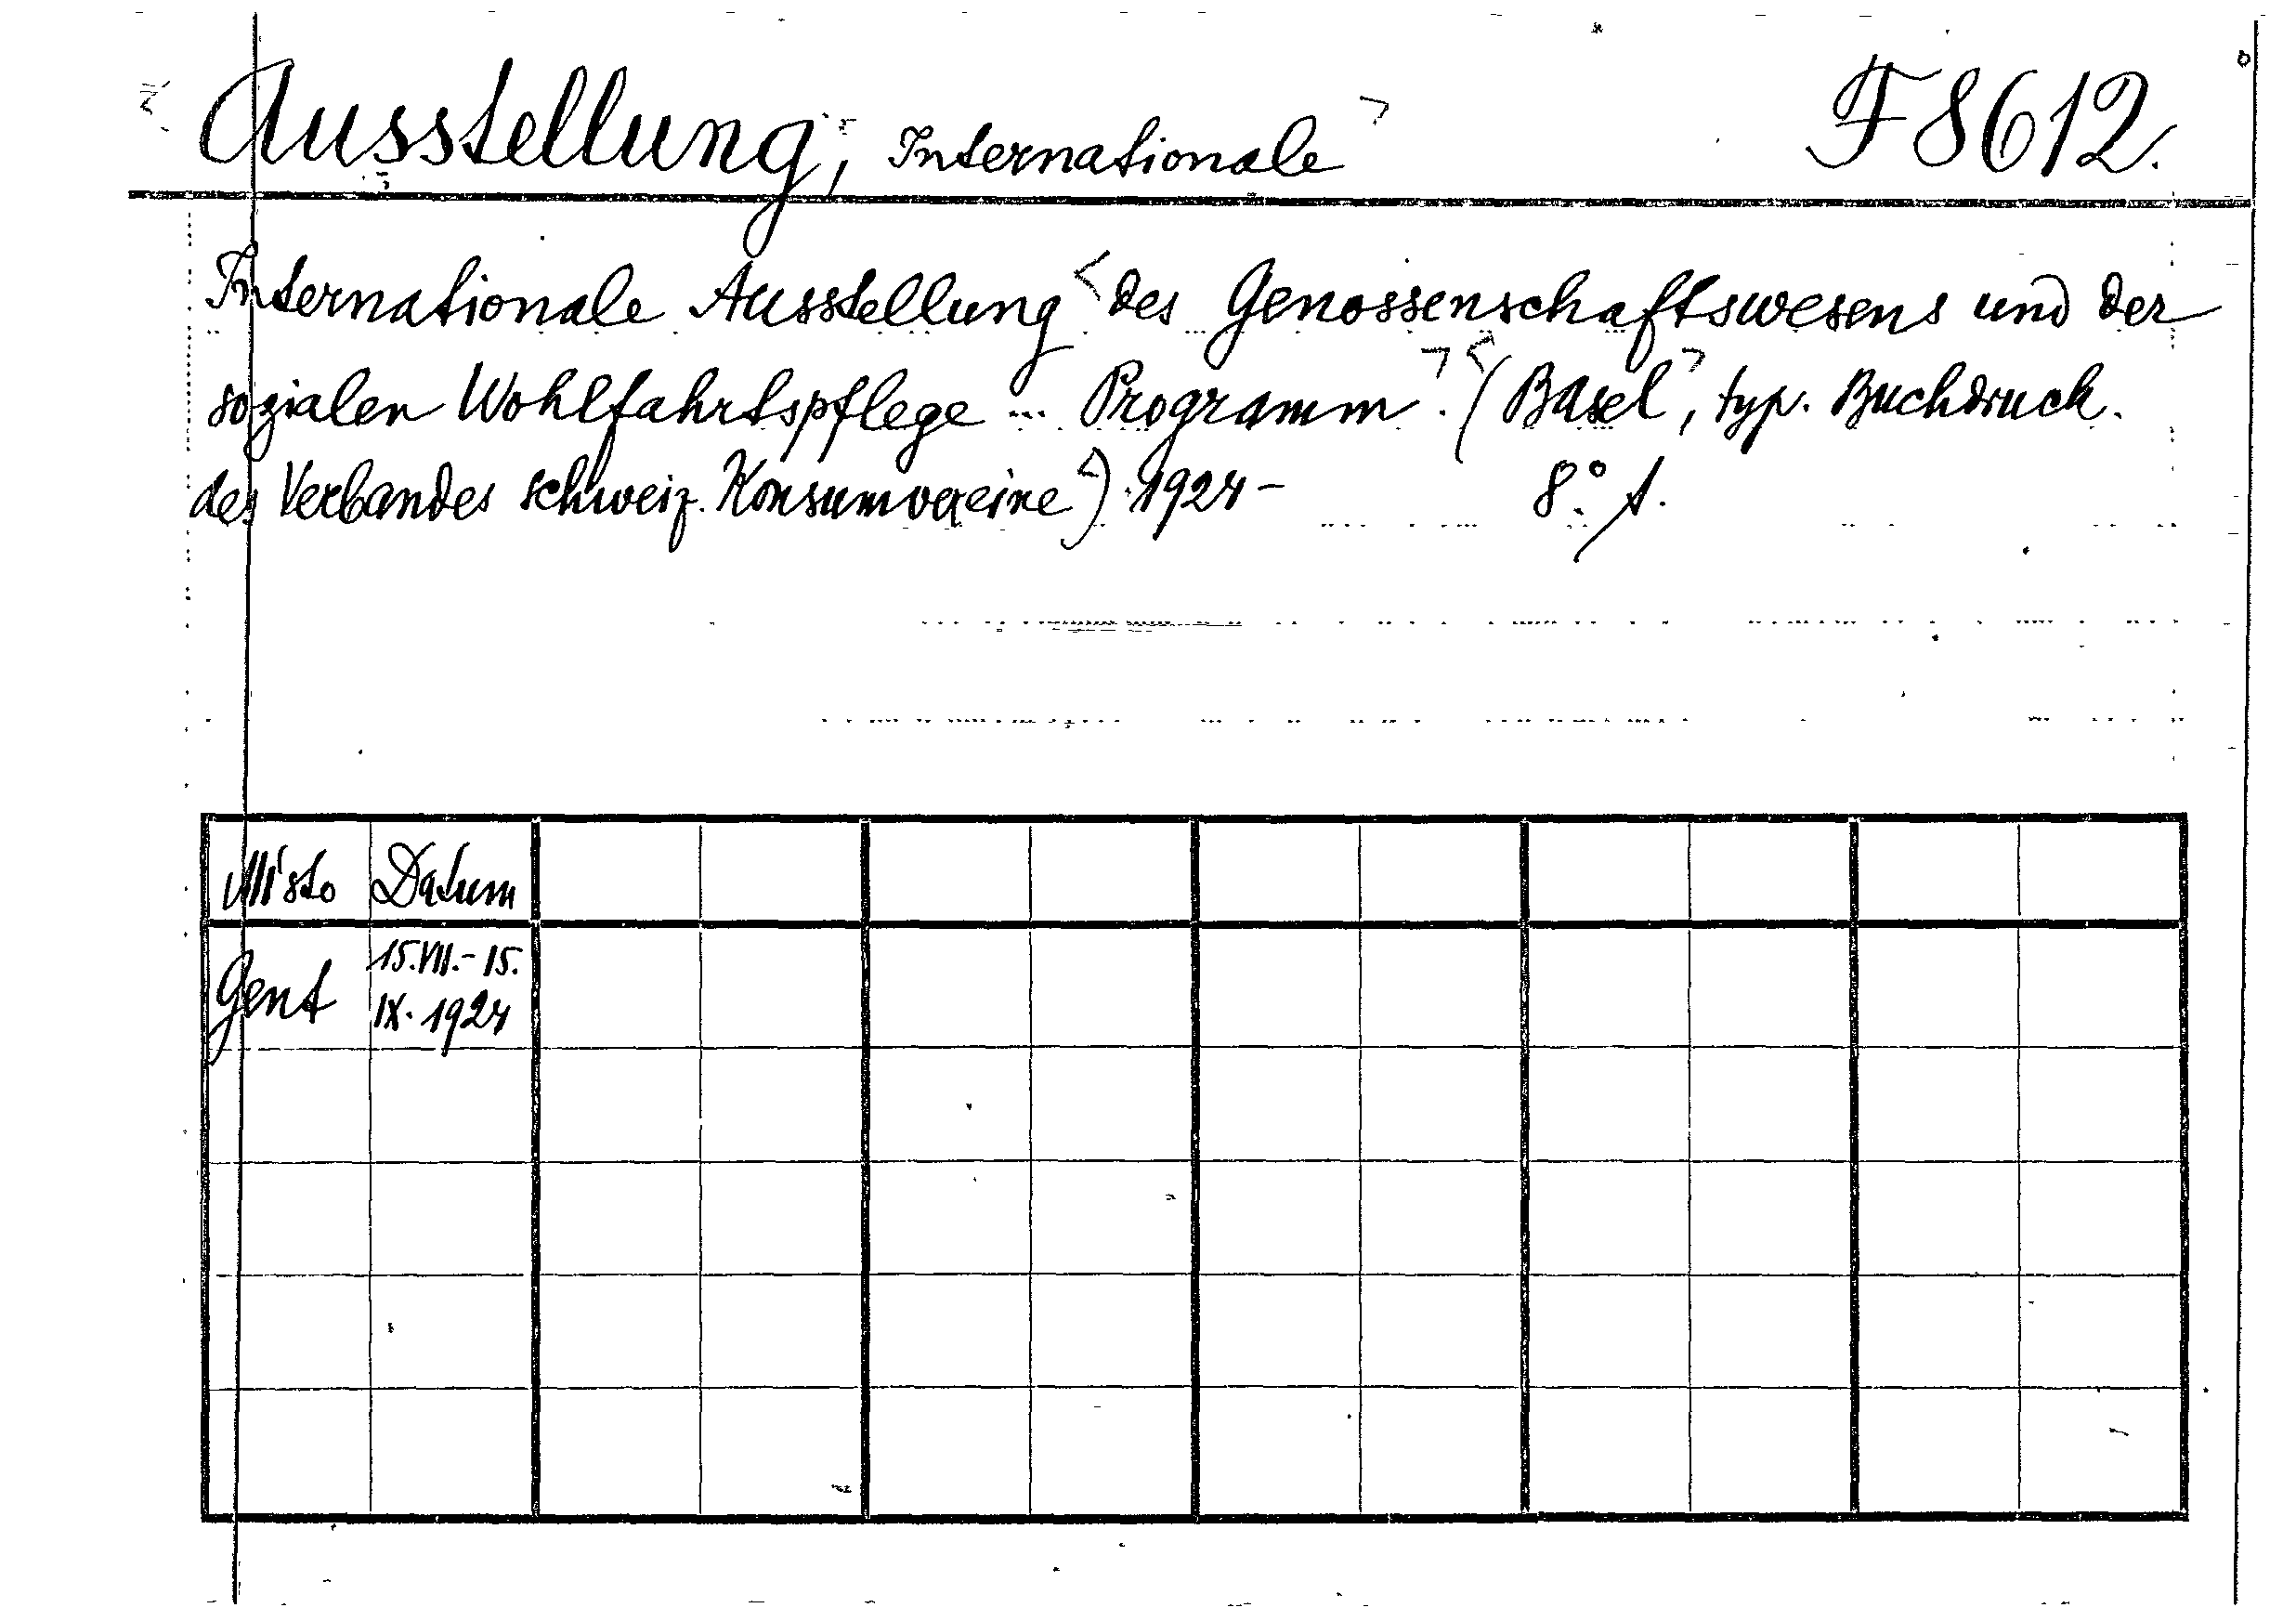 Ausstellung, Internationale F 8612.
Internationale Ausstellung des Genossenschaftswesens und der
sozialen Wohlfahrtspflege ... Programm. (Basel, typ. Buchdruck.
des Verbandes schweiz. Konsumvereine) 1924- 8° f.
Místo Datum
Gent 15.VII.-15.
IX. 1924